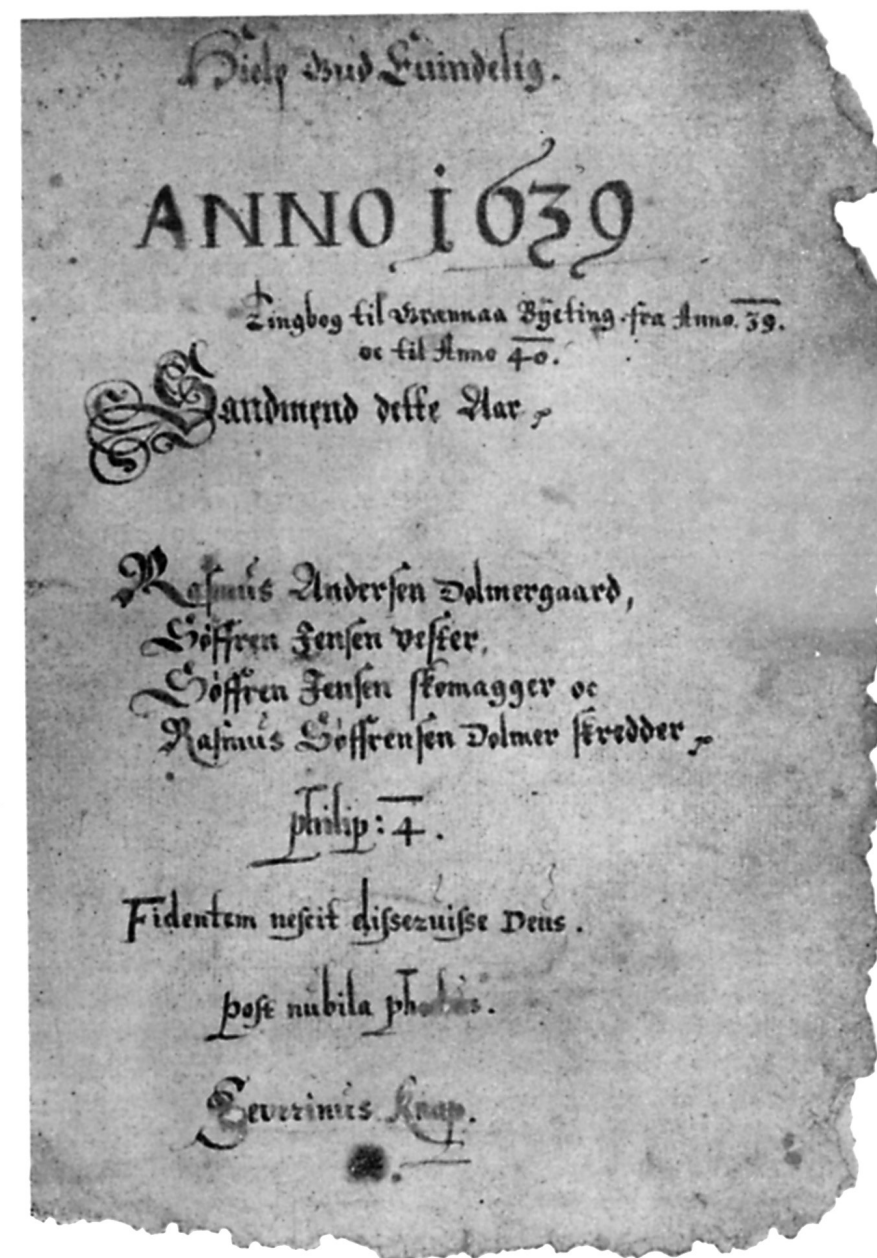 Hielp Gud Euindelig.
ANNO 1639
Tingbog til Grænnaa Byeting fra Anno. 39.
oc til Anno 40.
Sandmend dette Aar
Rasmus Andersen Dolmergaard,
Söffren Jensen vester,
Söffren Jensen skomagger oc
Rasmus Söffrensen Dolmer skredder
philip: 4.
Fidentem nescit disseruisse Deus.
post nubila phœbus.
Severinus Knap.